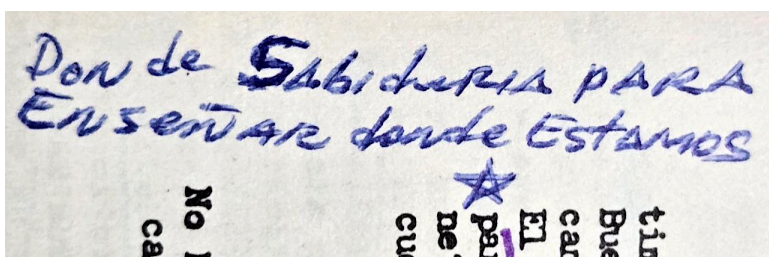 Don de Sabiduria para
Enseñar donde Estamos
No
ca
cu
ne
par
El
can
Bue
tin